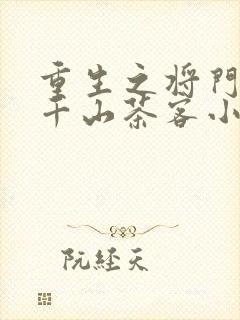 重生之将门
千山茶客小
阮经天